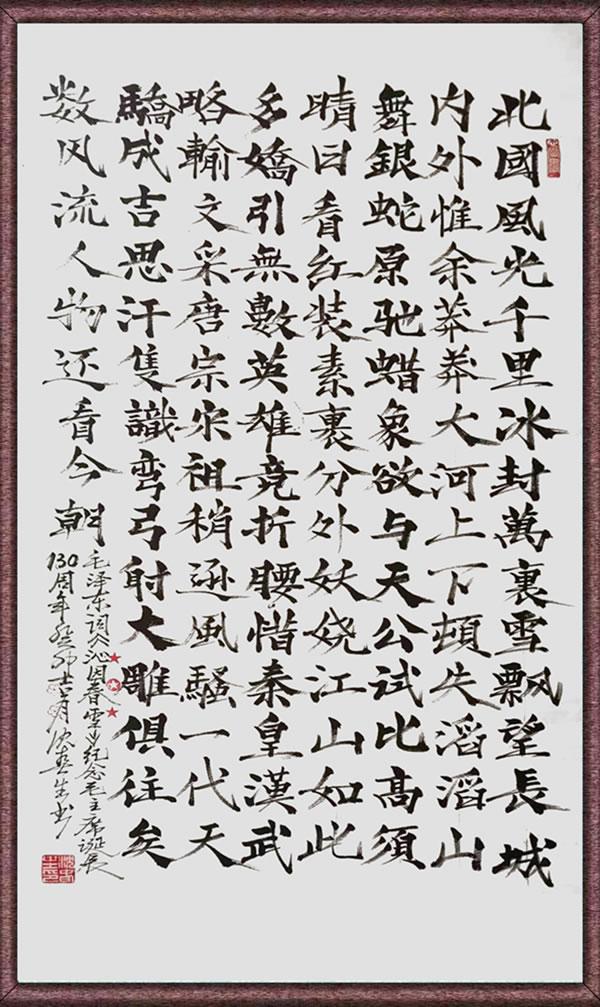 北國風光千里冰封萬裏雪飄望長城
内外惟余莽莽大河上下頓失滔滔山
舞銀蛇原驰蜡象欲与天公試比高須
晴日看红装素裹分外妖娆江山如此
多嬌引無數英雄竞折腰惜秦皇漢武
略輸文采唐宗宋祖稍逊風騷一代天
驕成吉思汗隻識弯弓射大雕俱往矣
数风流人物还看今朝
毛泽东词《沁园春雪》纪念毛主席诞辰
130周年癸卯 月 生书